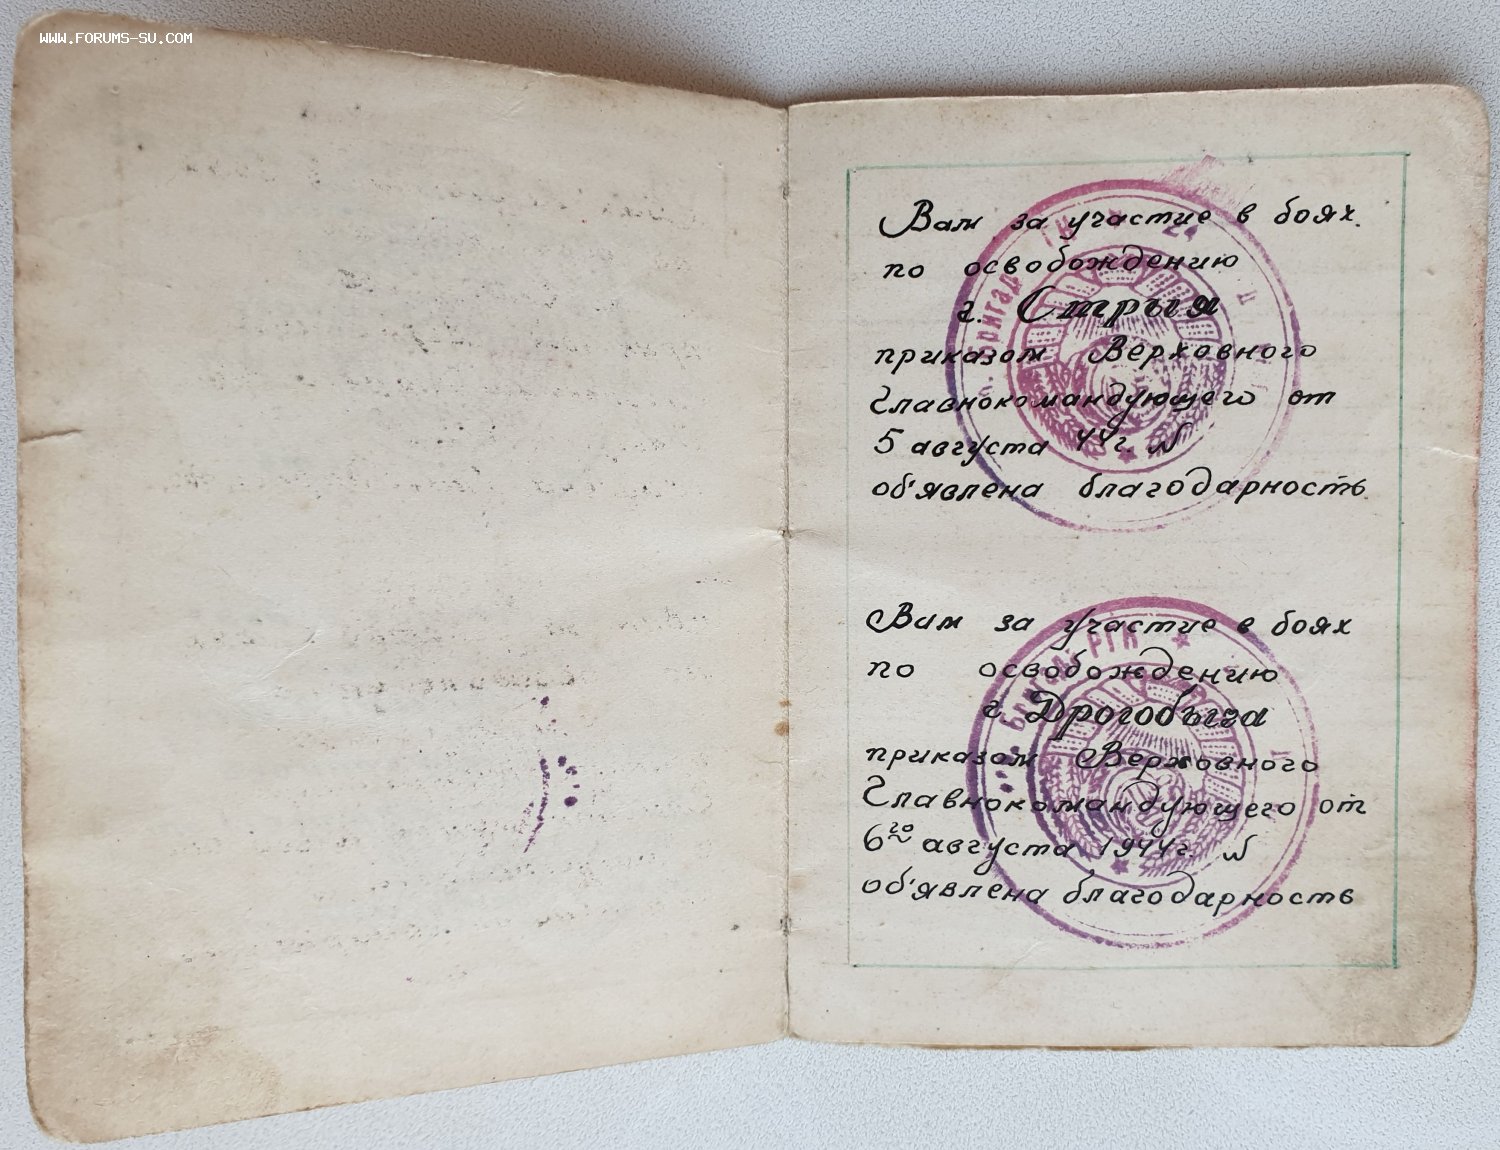 WWW.FORUMS-SU.COM
Вам за участие в боях.
по освобождению
г. Стрыя
приказом Верховного
Главнокомандующего от
5 августа 44 г. N
об'явлена благодарность
Вам за участие в боях
по освобождению
г. Дрогобыча
приказом Верховного
Главнокомандующего от
6го августа 1944 г. N
об'явлена благодарность